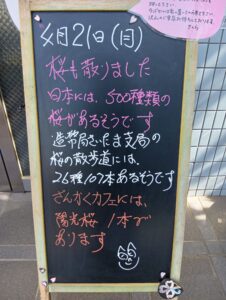 4月21日(月)
桜も散りました
日本には、500種類の
桜があるそうです
造幣局さいたま支局の
桜の散歩道には、
26種107本あるそうです
ざんかくカフェには、
陽光桜 1本が
あります